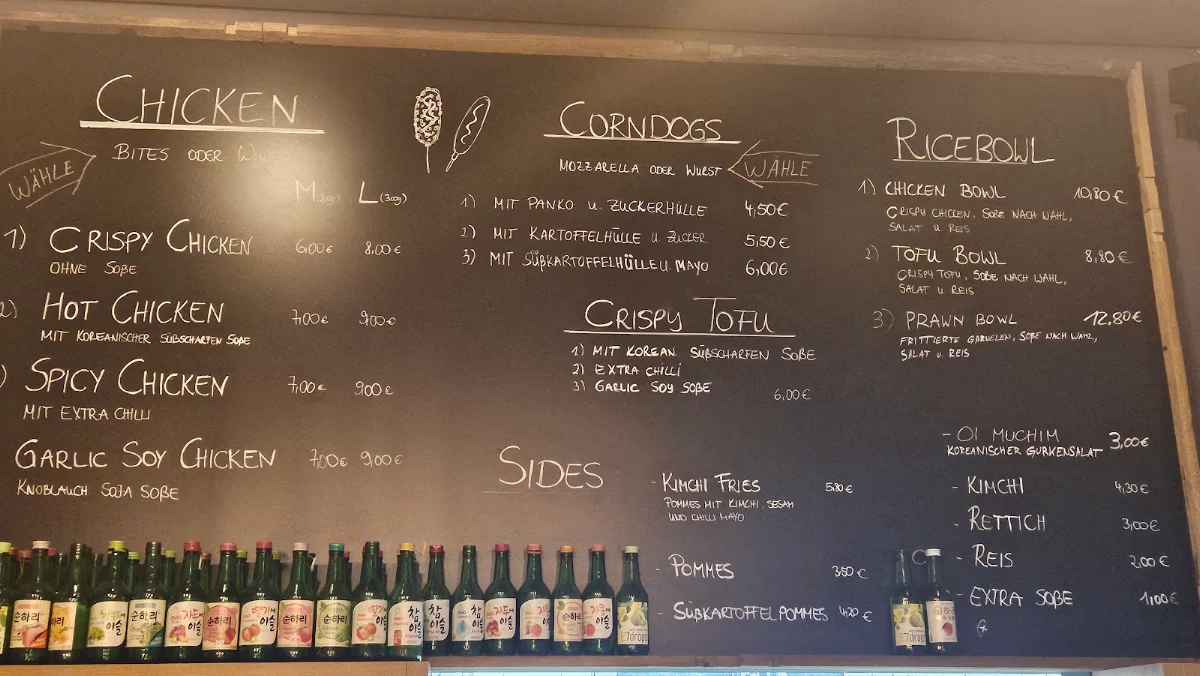 CHICKEN
BITES ODER WINGS
WÄHLE
M (200g) L (300g)
1) CRISPY CHICKEN 6,00€ 8,00€
OHNE SOßE
2) HOT CHICKEN 7,00€ 9,00€
MIT KOREANISCHER SÜßSCHARFEN SOßE
) SPICY CHICKEN 7,00€ 9,00€
MIT EXTRA CHILLI
GARLIC SOY CHICKEN 7,00€ 9,00€
KNOBLAUCH SOJA SOßE
CORNDOGS
MOZZARELLA ODER WURST WÄHLE
1) MIT PANKO U. ZUCKERHÜLLE 4,50€
2) MIT KARTOFFELHÜLLE U. ZUCKER 5,50€
3) MIT SÜßKARTOFFELHÜLLE U. MAYO 6,00€
CRISPY TOFU
1) MIT KOREAN. SÜßSCHARFEN SOßE
2) EXTRA CHILLI
3) GARLIC SOY SOßE
6,00€
RICEBOWL
1) CHICKEN BOWL 10,80€
CRISPY CHICKEN, SOßE NACH WAHL,
SALAT U. REIS
2) TOFU BOWL 8,80€
CRISPY TOFU, SOßE NACH WAHL,
SALAT U. REIS
3) PRAWN BOWL 12,80€
FRITTIERTE GARNELEN, SOßE NACH WAHL,
SALAT U. REIS
SIDES
- KIMCHI FRIES
POMMES MIT KIMCHI, SESAM
UND CHILLI MAYO
- POMMES 3,50€
- SÜßKARTOFFELPOMMES 4,20€
- OI MUCHIM 3,00€
KOREANISCHER GURKENSALAT
- KIMCHI 4,30€
- RETTICH 3,00€
- REIS 2,00€
- EXTRA SOßE 1,00€
순하리
이슬
순하리
이슬
순하리
이슬
순하리
순하리
이슬
참이슬
참이슬
7drops
7drops